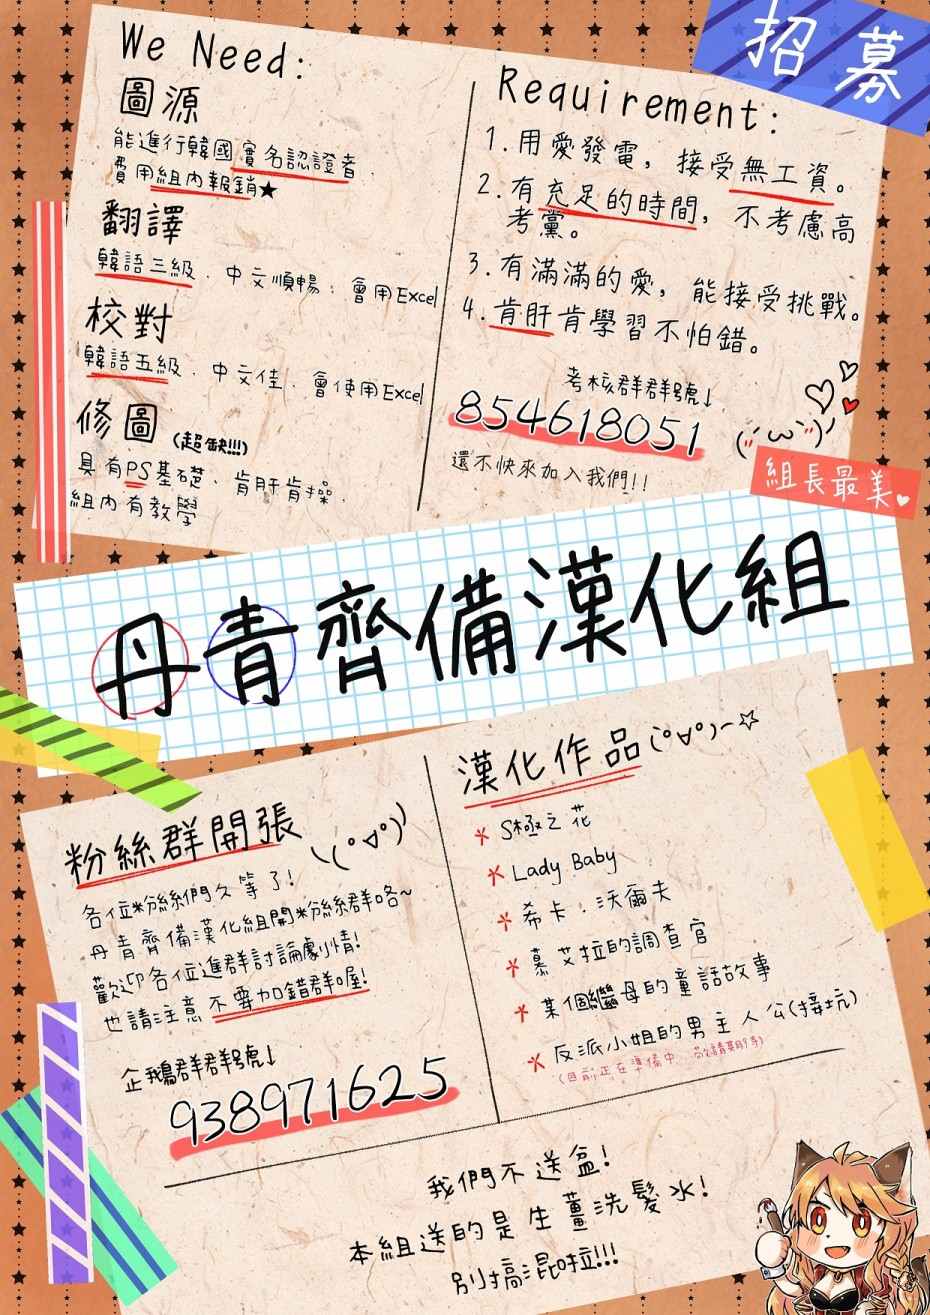 招募
We Need:
圖源
能進行韓國實名認證者.
費用組內報銷★
翻譯
韓語三級.中文順暢.會用Excel
校對
韓語五級.中文佳.會使用Excel
修圖(超缺!!!)
具有PS基礎.肯肝肯操.
組內有教學
Requirement:
1.用愛發電,接受無工資。
2.有充足的時間,不考慮高
考黨。
3.有滿滿的愛,能接受挑戰。
4.肯肝肯學習不怕錯。
考核群群號↓
854618051
還不快來加入我們!!
組長最美
丹青齊備漢化組
粉絲群開張
各位粉絲們久等了!
丹青齊備漢化組開粉絲群咯~
歡迎各位進群討論劇情!
也請注意不要加錯群喔!
企鵝群群號↓
938971625
漢化作品(°∀°)~☆
S極之花
Lady Baby
希卡.沃爾夫
慕艾拉的調查官
某個繼母的童話故事
反派小姐的男主人公(接坑)
(目前正在準備中.敬請期待)
我們不送盆!
本組送的是生薑洗髮水!
別搞混啦!!!